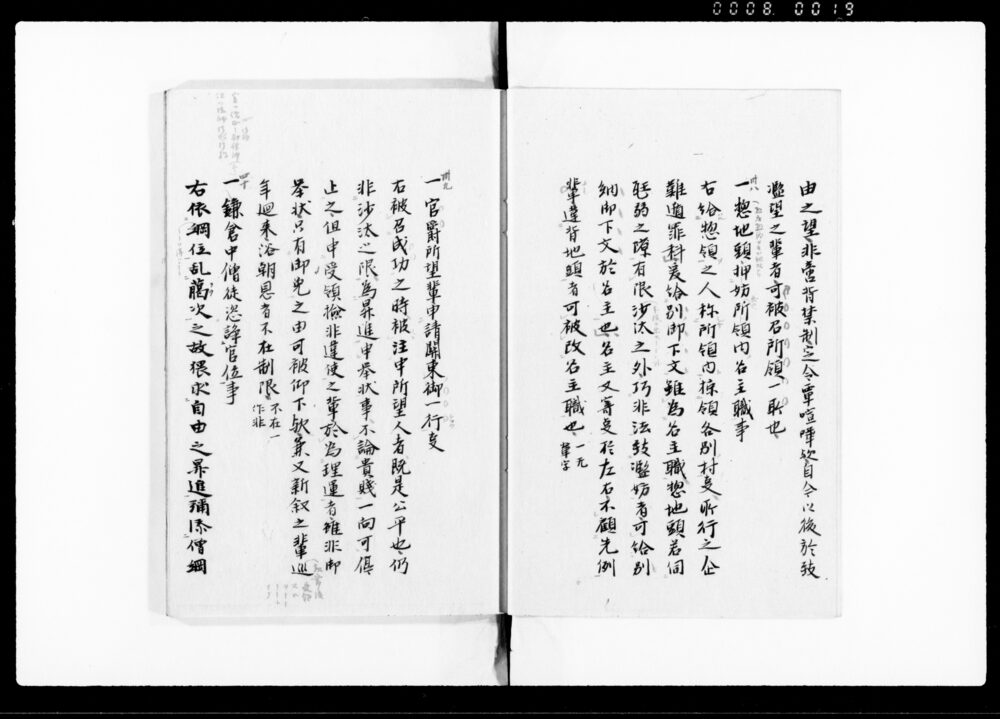 0008 0019
由之望非啻背禁制定令覃喧嘩歟自今以後於致
濫望之輩者可被召所領一所也
卅八
一惣地頭押妨所領内名主職事
右給惣領之人称所領内掠領各別村事所行之企
難遁罪科爰給別御下文雖為名主職惣地頭若伺
尫弱之隙有限沙汰之外巧非法致濫妨者可給別
納御下文於名主也名主又寄事於左右不顧先例
違背地頭者可被改名主職也
一元
輩字
卅九
一官爵所望輩申請関東御一行事
右被召成功之時被注申所望人者既是公平也仍
非沙汰之限為昇進申挙状事不論貴賤一向可停
止之但申受領撿非違使之輩於為理運者雖非御
挙状只有御免之由可被仰下歟兼又新叙之輩巡
年廻来浴朝恩者不在制限
不在一
作非
四十
一鎌倉中僧徒恣諍官位事
右依綱位乱﨟次之故猥求自由之昇進弥添僧綱